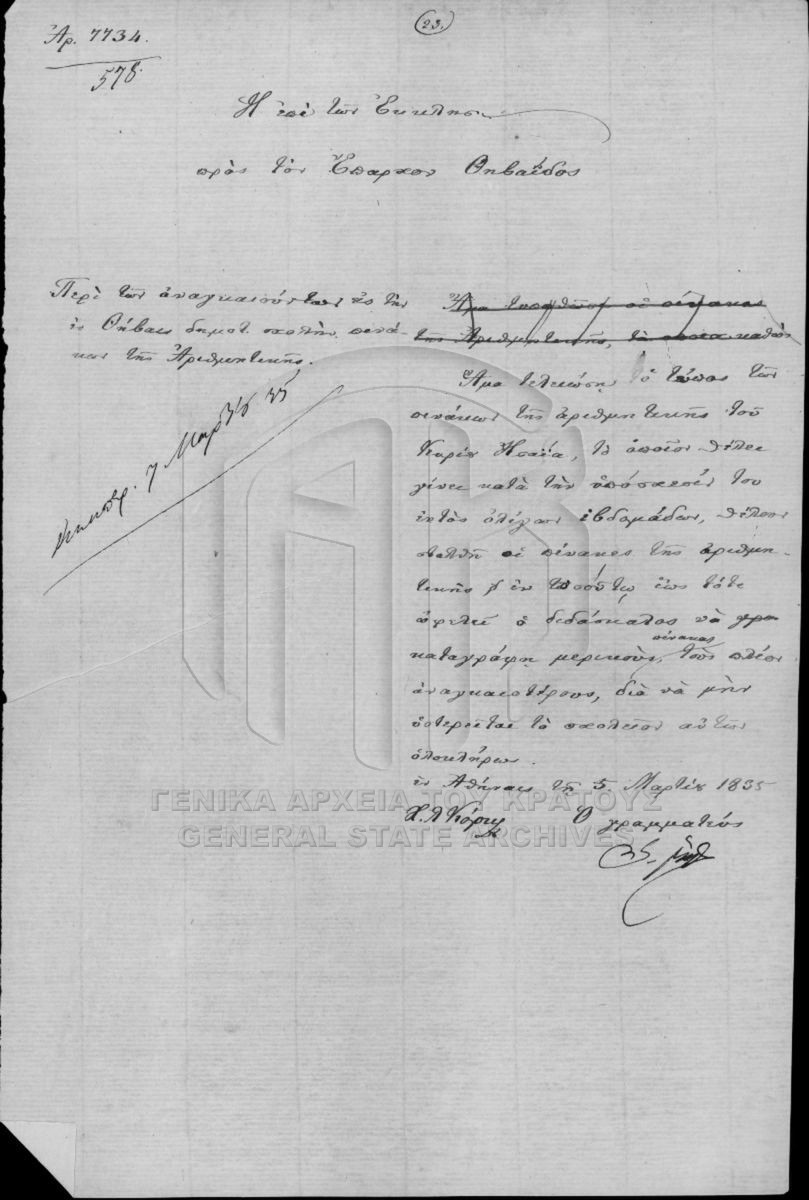 23.
Ἀρ. 7734.
578.
Ἡ ἐπὶ τῶν Ἐκκλησ.
πρὸς τὸν Ἔπαρχον Θηβαΐδος
Περὶ τῶν ἀναγκαιούντων εἰς τὴν
ἐν Θήβαις δημοτ. σχολὴν πινά-
κων τῆς Ἀριθμητικῆς.
Ἅμα τυπωθῶσιν οἱ πίνακες
τῆς Ἀριθμητικῆς, τὰ ὁποῖα καθὼς
Ἅμα τελειώσῃ ὁ τύπος τῶν
πινάκων τῆς ἀριθμητικῆς τοῦ
Κυρίου Ἡσαΐα, τὸ ὁποῖον θέλει
γίνει κατὰ τὴν ὑπόσχεσίν του
ἐντὸς ὀλίγων ἑβδομάδων, θέλουν
σταλθῆ οἱ πίνακες τῆς ἀριθμη-
τικῆς ἐν τοσούτῳ ἕως τότε
ὀφείλει ὁ διδάσκαλος νὰ
καταγράφῃ μερικοὺς πίνακας, τοὺς πλέον
ἀναγκαιοτέρους, διὰ νὰ μὴν
ὑστερῆται τὸ σχολεῖον αὐτῶν
ὁλοκλήρως.
ἐν Ἀθήναις τῇ 5. Μαρτίου 1835
Ὁ γραμματεὺς
7 Μαρτίου 35
ΓΕΝΙΚΑ ΑΡΧΕΙΑ ΤΟΥ ΚΡΑΤΟΥΣ
GENERAL STATE ARCHIVES